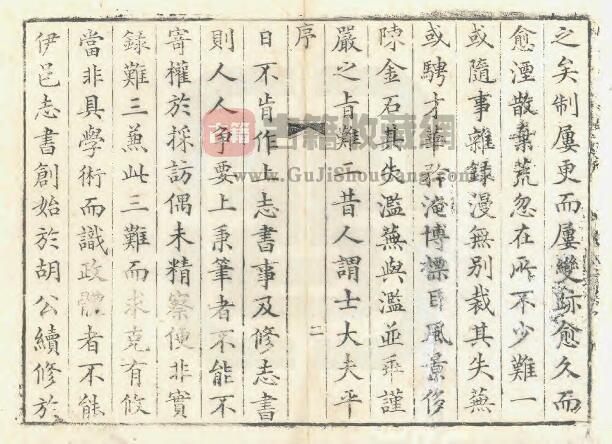 之矣制屢更而屢變跡愈久而
愈湮散棄荒忽在所不少難一
或隨事雜錄漫無別裁其失蕪
或騁才華矜淹博標目風景侈
陳金石其失濫蕪與濫並乖謹
嚴之旨難二昔人謂士大夫平
序
二
日不肯作上志書事及修志書
則人人爭要上秉筆者不能不
寄權於採訪偶未精察便非實
録難三兼此三難而求克有攸
當非具學術而識政體者不能
伊邑志書創始於胡公續修於
古籍 古籍收藏網
www.GuJiShouCang.com